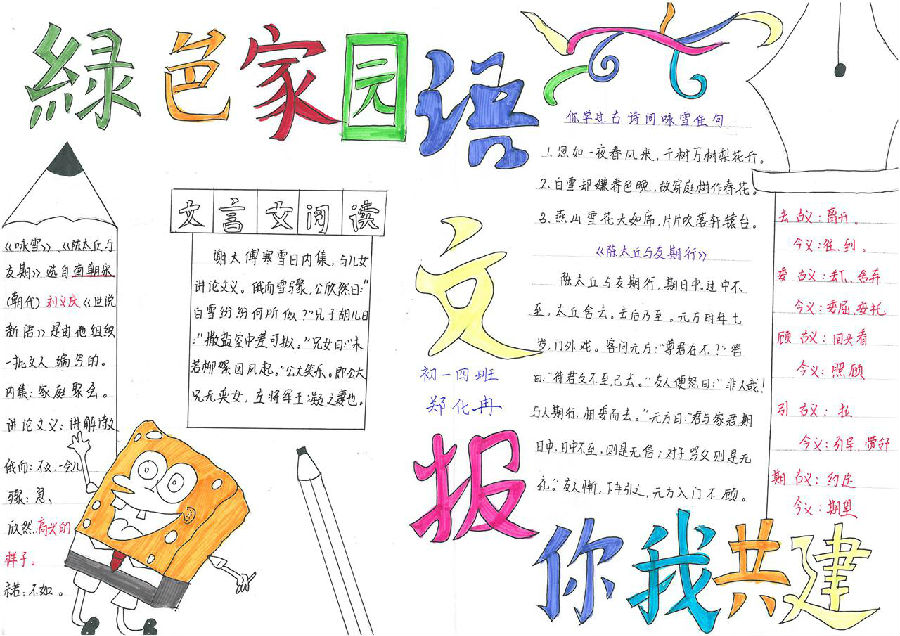 綠色家园
语文报
初一四班
郑化冉
你我共建
《咏雪》、《陈太丘与
友期》选自南朝宋
(朝代)刘义庆《世说
新语》是由他组织
一批文人编写的。
内集：家庭聚会。
讲论文义：讲解诗
俄而：不久，一会儿
骤：急
欣然：高兴的
样子。
若：不如。
文言文阅读
谢太傅寒雪日内集，与儿女
讲论文义。俄而雪骤，公欣然曰："
白雪纷纷何所似？"兄子胡儿曰
："撒盐空中差可拟。"兄女曰："未
若柳絮因风起。"公大笑乐。即公大
兄无奕女，左将军王凝之妻也。
古诗词咏雪佳句
1.忽如一夜春风来，千树万树梨花开。
2.白雪却嫌春色晚，故穿庭树作春花。
3.燕山雪花大如席，片片吹落轩辕台。
《陈太丘与友期行》
陈太丘与友期行，期日中，过中不
至，太丘舍去，去后乃至。元方时年七
岁，门外戏。客问元方："尊君在不？"答
曰："待君久不至，已去。"友人便怒曰："非人哉！
与人期行，相委而去。"元方曰："君与家君期
日中，日中不至，则是无信；对子骂父，则是无
礼。"友人惭，下车引之，元方入门不顾。
去 古义：离开。
今义：往，到。
委 古义：丢下、舍弃
今义：委屈、委托
顾 古义：回头看
今义：照顾
引 古义：拉
今义：引导
期 古义：约定
今义：期望